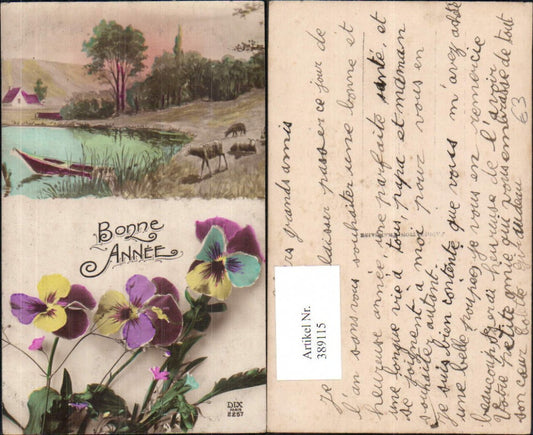 BONNE
ANNÉE
DIX
PARIS
2257
Artikel Nr.
389115
grands amis
Je laisser passer ce jour de
l'an sans vous souhaiter une bonne et
heureuse année, une parfaite santé, et
une longue vie à tous, papa et maman
se joignent a moi pour vous en
souhaiter autant.
Je suis bien contente que vous m'avez acheté
une belle poupée, je vous en remercie
beaucoup, et heureuse de l'avoir
Votre petite amie qui vous embrasse de tout
son cœur
63